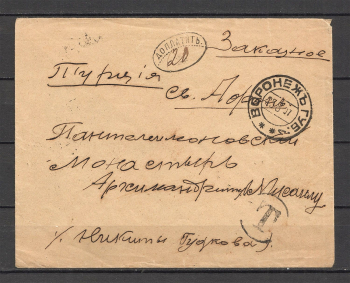 ДОПЛАТИТЬ
20
Заказное
Турція
Св. Аѳон
ВОРОНЕЖЪ ГУБ.
Пантелеимоновской
Монастырь
Архимандриту Мисаилу
Т
Никиты Гудкова